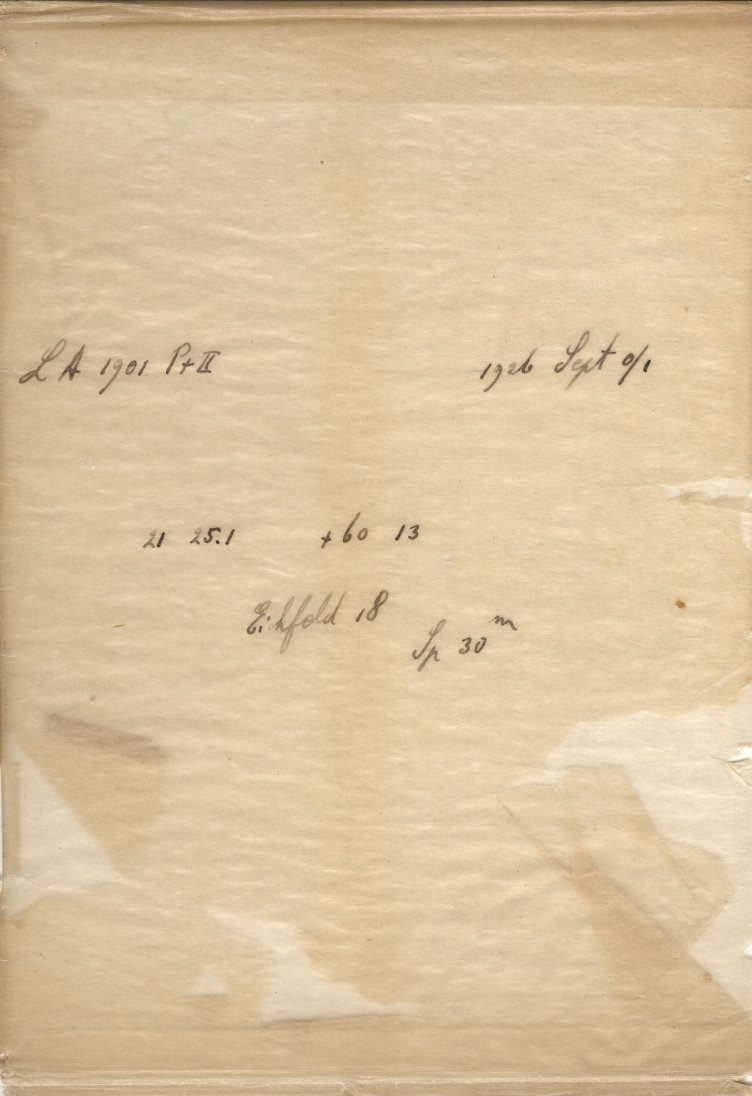 L A 1901 Pt II 1926 Sept 0/1
21 25.1 +60 13
18
Sp 30m